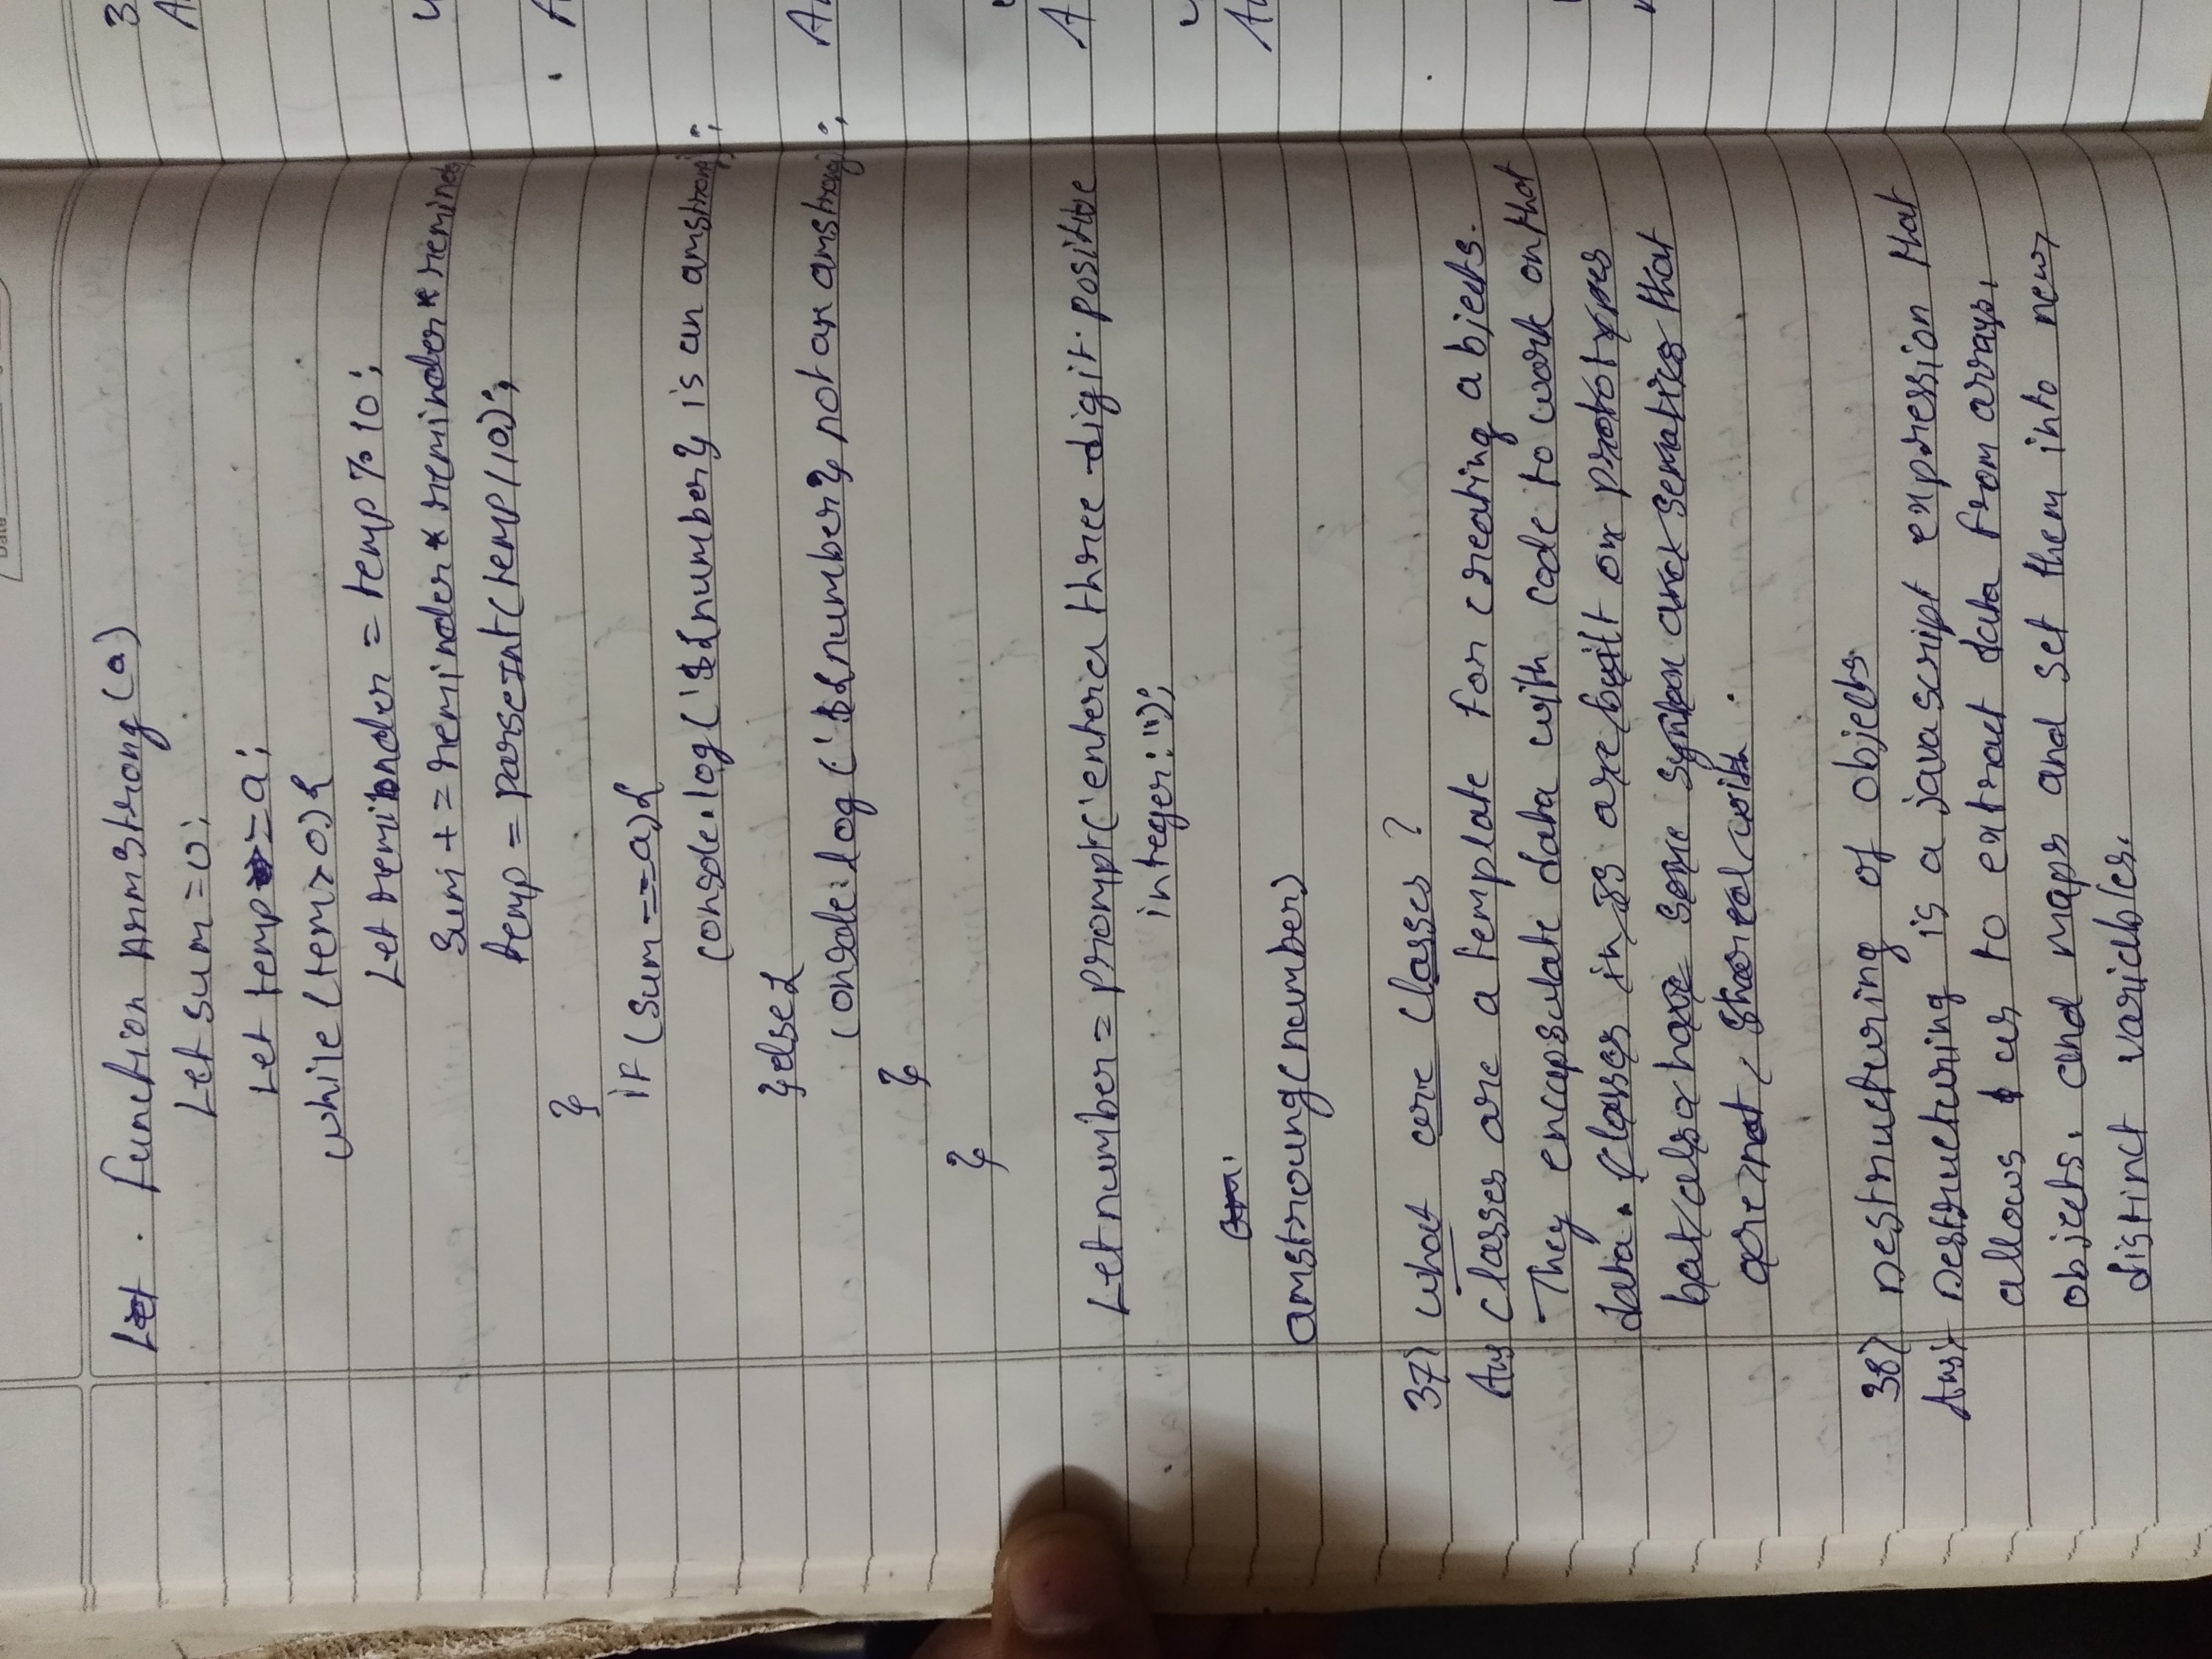 Function Armstrong(a)
Let sum=0;
Let temp=a;
while(tem>0){
Let reminder = temp%10;
Sum+=reminder*reminder*remind
temp=parseInt(temp/10);
}
if(sum==a){
console.log('${number} is an amstrong;
}else{
console.log('${number} not an amstrong;
}
}
Let number=prompt('enter a three-digit positive
integer:");
amstroung(number)
37) what are classes?
Ans classes are a template for creating abjects.
They encapsulate data with code to work on that
data. classes in JS are built on prototypes
bat also have some syntax and sematics that
are not shared with.
38) Destructuring of objects
Ans:- Destructuring is a javascript expression that
allows us to extract data from arrays,
objects. and maps and set them into new,
distinct variables.